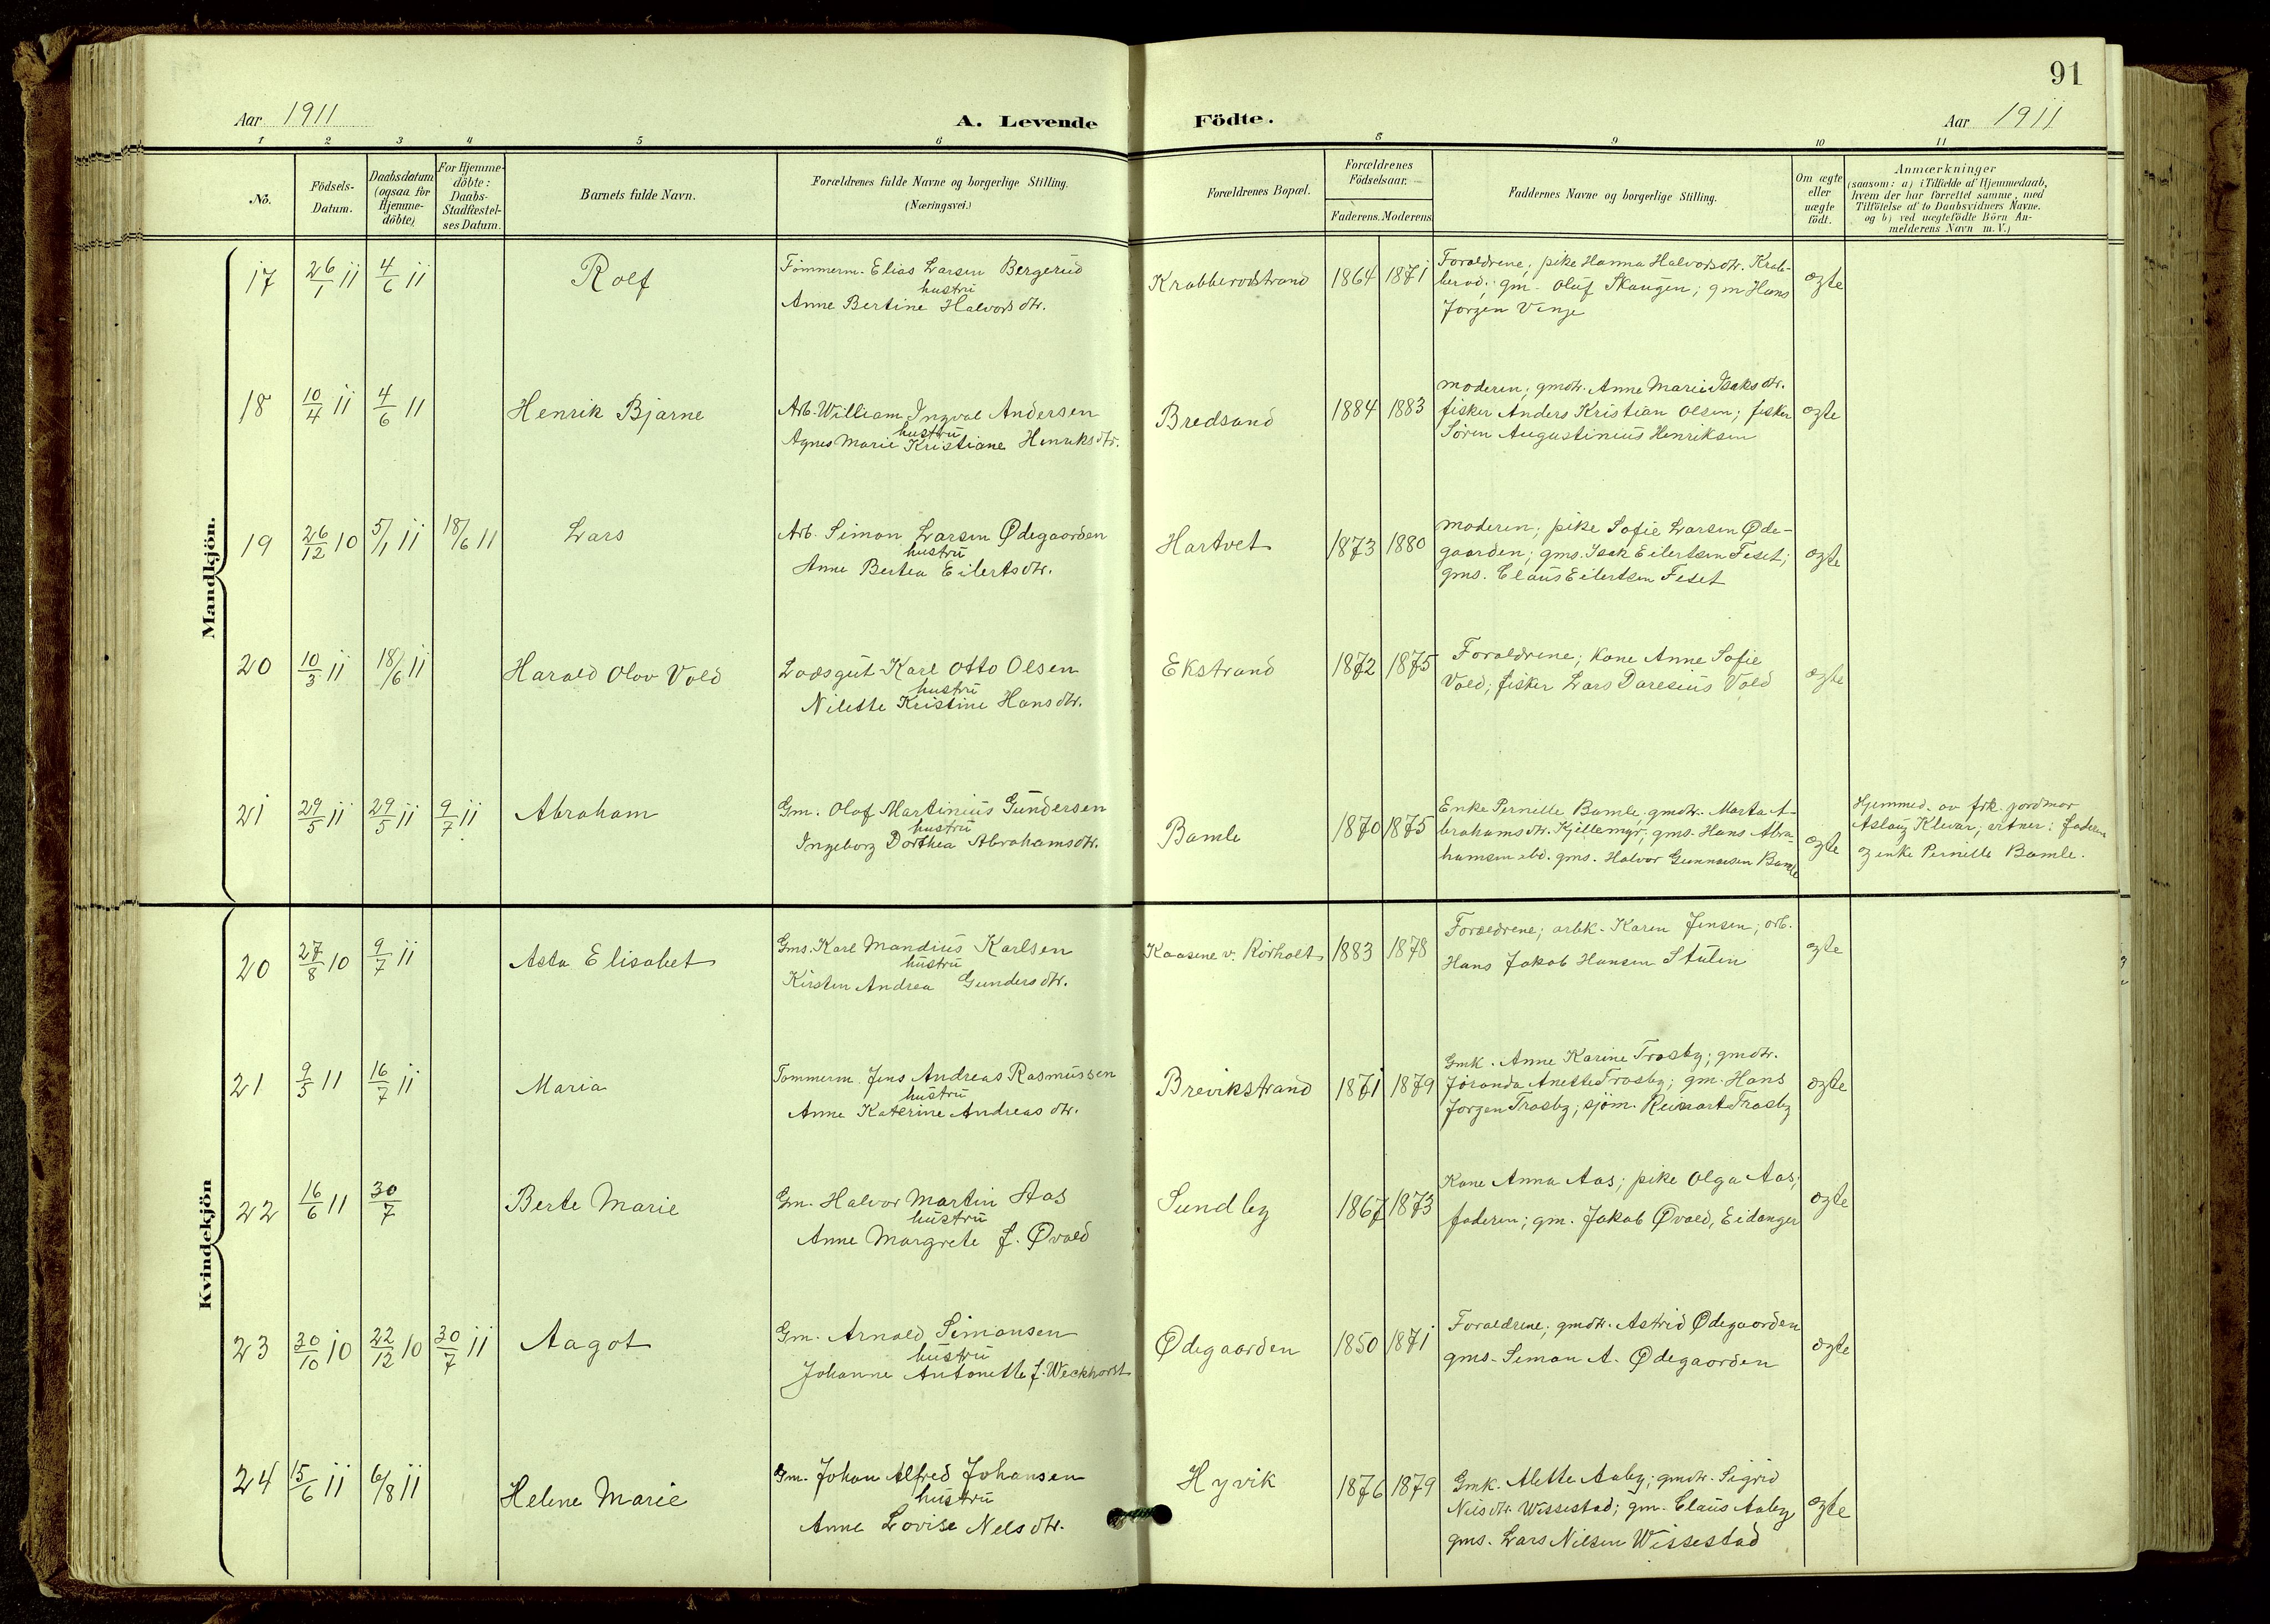 91
Aar 1911
A. Levende Födte.
Aar 1911
1 2 3 4 5 6 8 9 10 11
No.
Födsels-Datum.
Daabsdatum (ogsaa for Hjemme-döbte)
For Hjemme-döbte: Daabs-Stadfæstel-ses Datum.
Barnets fulde Navn.
Forældrenes fulde Navne og borgerlige Stilling. (Næringsvei.)
Forældrenes Bopæl.
Forældrenes Födselsaar. Faderens. Moderens
Faddernes Navne og borgerlige Stilling.
Om ægte eller uægte födt.
Anmærkninger
(saasom: a) i Tilfælde af Hjemmedaab,
hvem der har forrettet samme, med
Tilföielse af to Daabsvidners Navne.
og b) ved uegtefödte Börn An-
melderens Navn m. V.)
Mandkjön.
17 26/1 11 4/6 11 Rolf
Tømmerm. Elias Larsen Bergerud
hustru
Anne Bertine Halvorsdtr.
Krabberødstrand 1864 1871
Forældrene; pike Hanna Halvorsdtr. Krab-
berød; gm. Oluf Skaugen; gm Hans
Jørgen Vinje
ægte
18 10/4 11 4/6 11 Henrik Bjarne
Arb. William Ingval Andersen
hustru
Agnes Marie Kristiane Henriksdtr.
Bredsand 1884 1883
Moderen; gmdtr. Anne Marie Isaksdtr.
fisker Anders Kristian Olsen; fisker
Søren Augustinius Henriksen
ægte
19 26/12 10 5/1 11 18/6 11 Lars
Arb. Simon Larsen Ødegaarden
hustru
Anne Bertea Eilertsdtr.
Hartvet 1873 1880
Moderen; pike Sofie Larsen Øde-
gaarden; gms. Isak Eilertsen Feset;
gms. Claus Eilertsen Feset
ægte
20 10/3 11 18/6 11 Harald Olov Vold
Lodsgut Karl Otto Olsen
hustru
Nilette Kristine Hansdtr.
Ekstrand 1872 1875
Forældrene; Kone Anne Sofie
Vold; fisker Lars Daresius Vold
ægte
21 29/5 11 29/5 11 9/7 11 Abraham
Gm. Olaf Martinius Gundersen
hustru
Ingeborg Dorthea Abrahamsdtr.
Bamle 1870 1875
Enke Pernille Bamle, gmdtr. Marta A-
brahamsdtr. Kjellemyr, gms. Hans Abra-
hamsen ibd. gms. Halvor Gunnarsen Bamle
ægte
Hjemmed. av frk. jordmor
Aslaug Klevar; vitner: faderen
og enke Pernille Bamle.
Kvindekjön
20 27/8 10 9/7 11 Asta Elisabet
Gms. Karl Mandius Karlsen
hustru
Kirsten Andrea Gundersdtr.
Kaasene v. Rörholt 1883 1878
Forældrene; arbk. Karen Jensen; arb.
Hans Jakob Hansen Stulen
ægte
21 9/5 11 16/7 11 Maria
Tømmerm. Jens Andreas Rasmussen
hustru
Anne Katerine Andreasdtr.
Brevikstrand 1871 1879
Gmk. Anne Karine Trosby; gmdtr.
Jøranda Anette Trosby; gm. Hans
Jørgen Trosby; sjöm. Reinart Trosby
ægte
22 16/6 11 30/7 Berte Marie
Gm. Halvor Martin Aas
hustru
Anne Margrete f. Øvald
Sundby 1867 1873
Kone Anna Aas; pike Olga Aas;
faderen; gm. Jakob Øvald, Eidanger
ægte
23 30/10 10 22/12 10 30/7 11 Aagot
Gm. Arnold Simonsen
hustru
Johanne Antonette f. Weckhorst
Ødegaarden 1850 1871
Forældrene; gmdtr. Astrid Ødegaarden
gms. Simon A. Ødegaarden
ægte
24 15/6 11 6/8 11 Helene Marie
Gm. Johan Alfred Johansen
hustru
Anne Lovise Nelsdtr.
Hyvik 1876 1879
Gmk. Alette Aaby; gmdtr. Sigrid
Nilsdtr. Wissestad; gm. Claus Aaby
gms. Lars Nilsen Wissestad
ægte